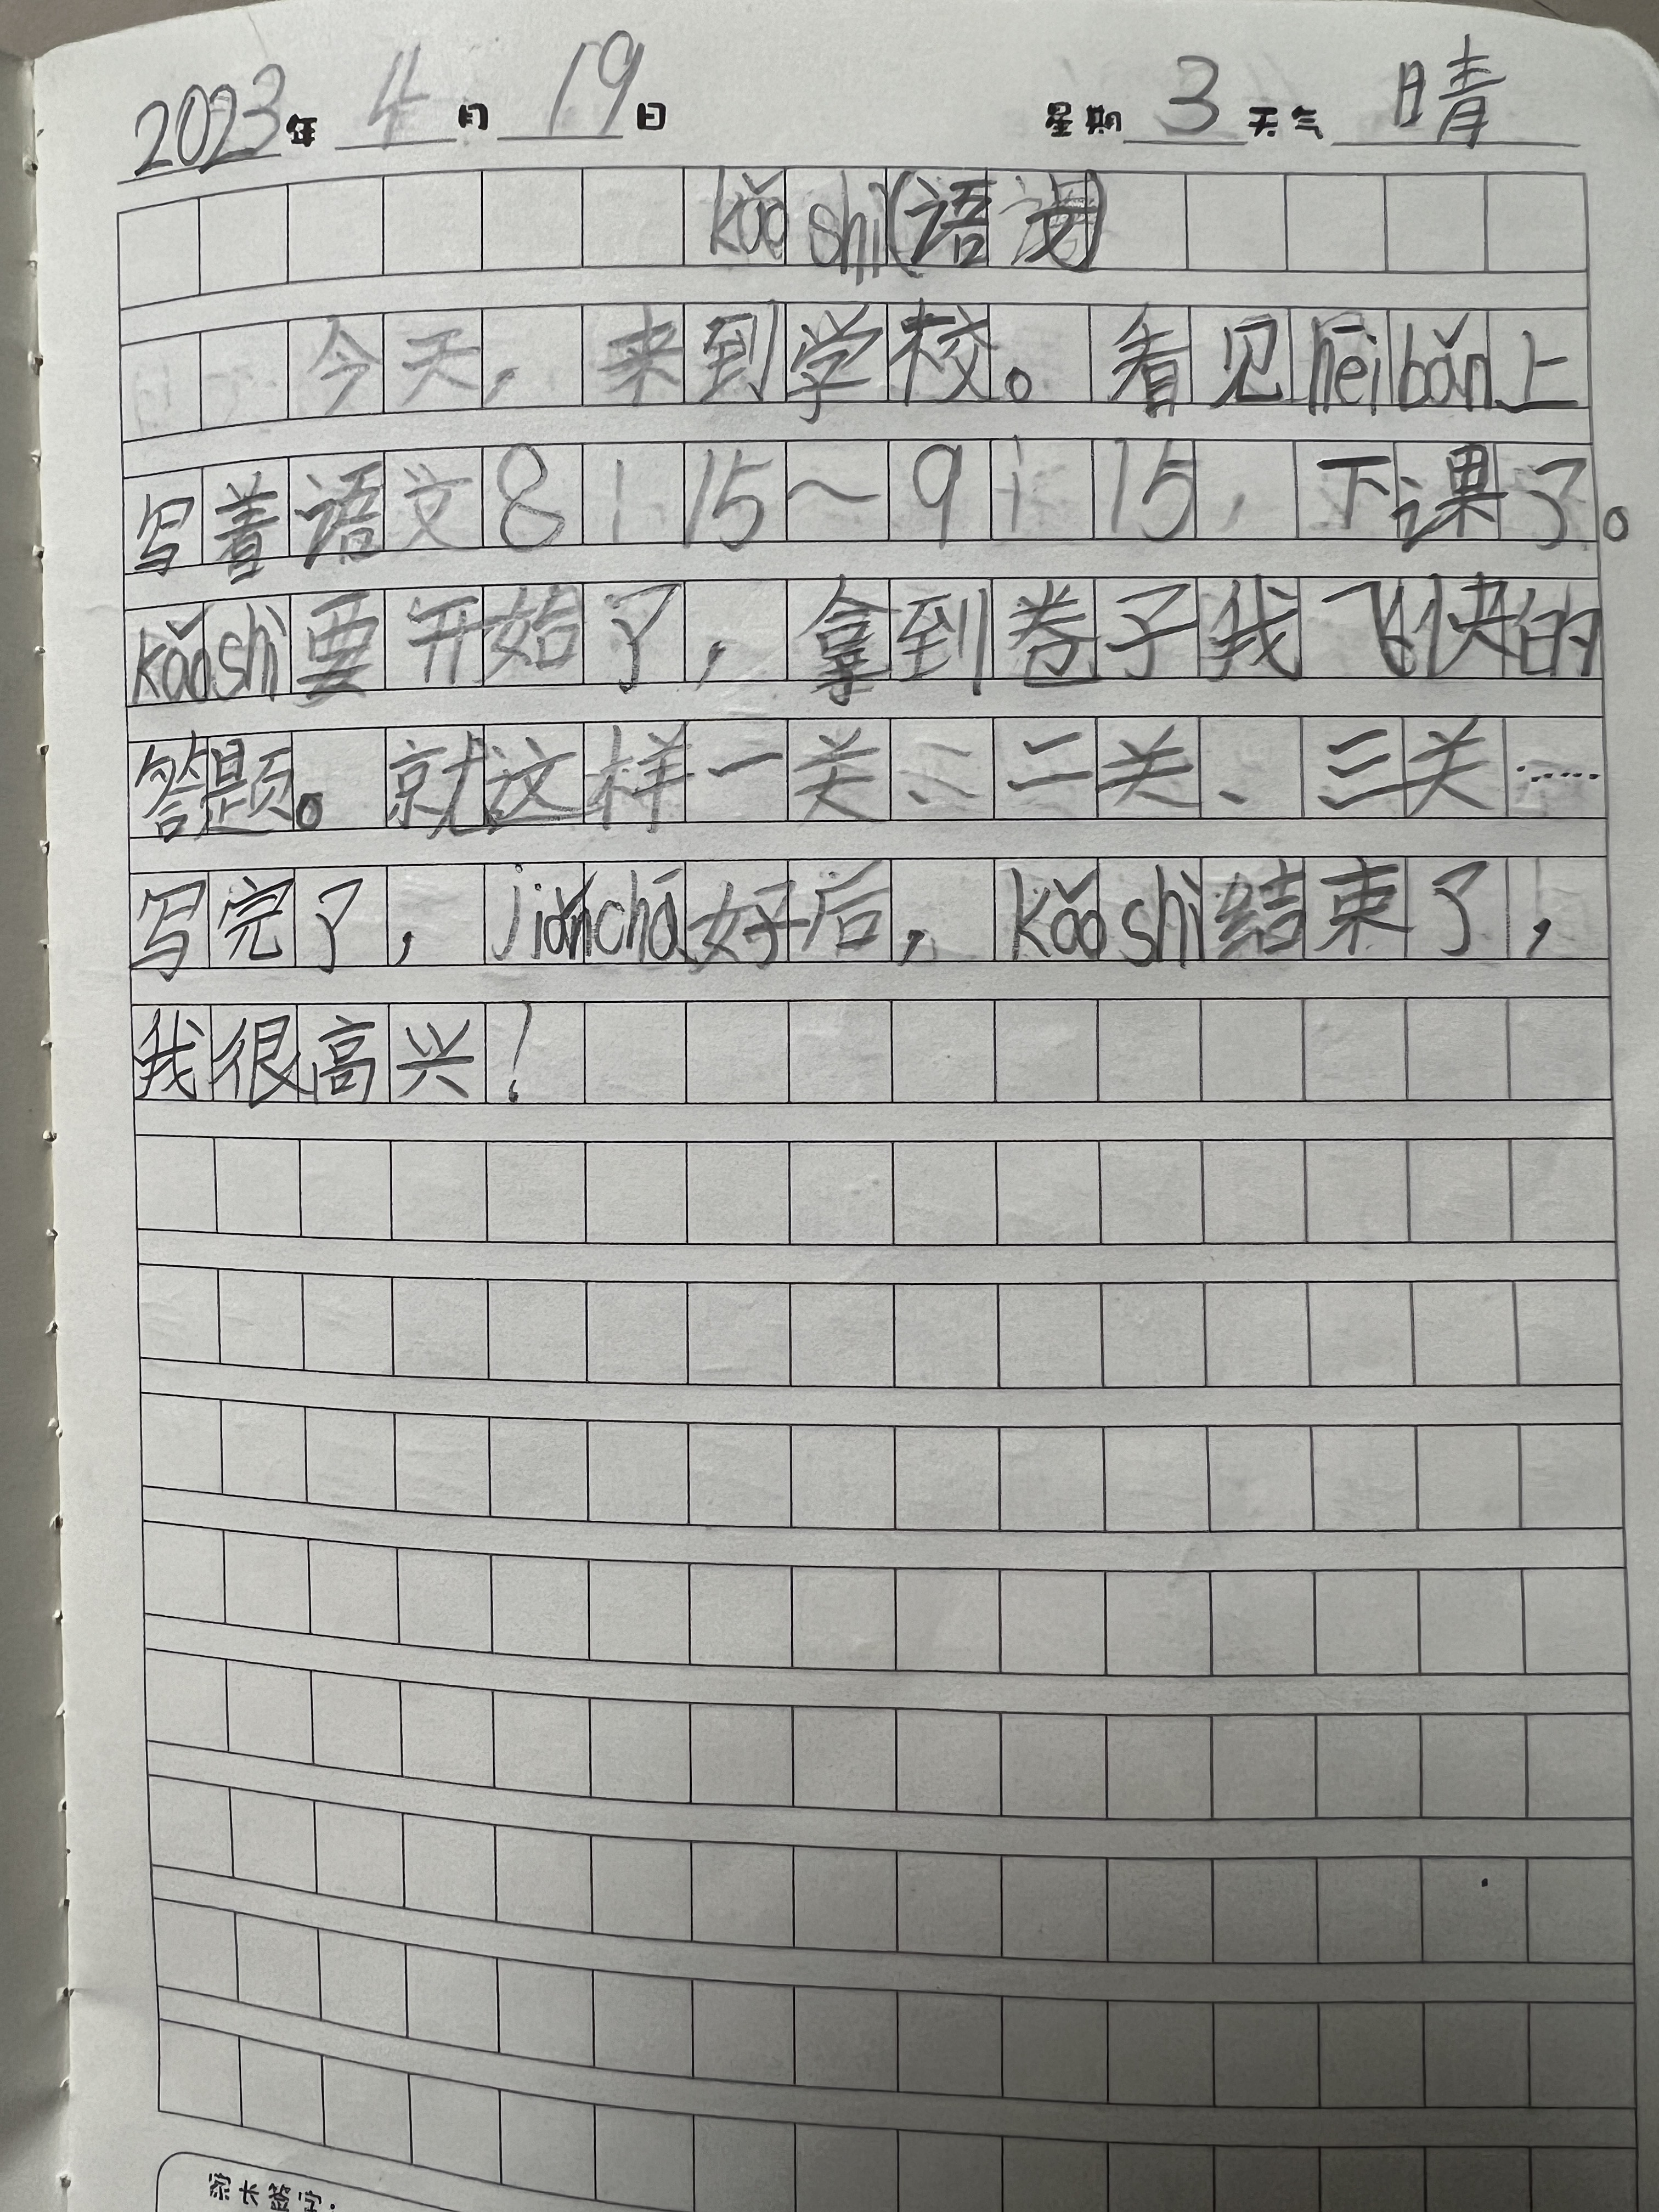 2023年 4月 19日 星期 3 天气 晴
kǎo shì(语文)
今天，来到学校。看见hēi bǎn上
写着语文8：15～9：15，下课了。
kǎo shì要开始了，拿到卷子我飞快的
答题。就这样一关、二关、三关……
写完了，jiǎnchá好后，kǎo shì结束了，
我很高兴！
家长签字：